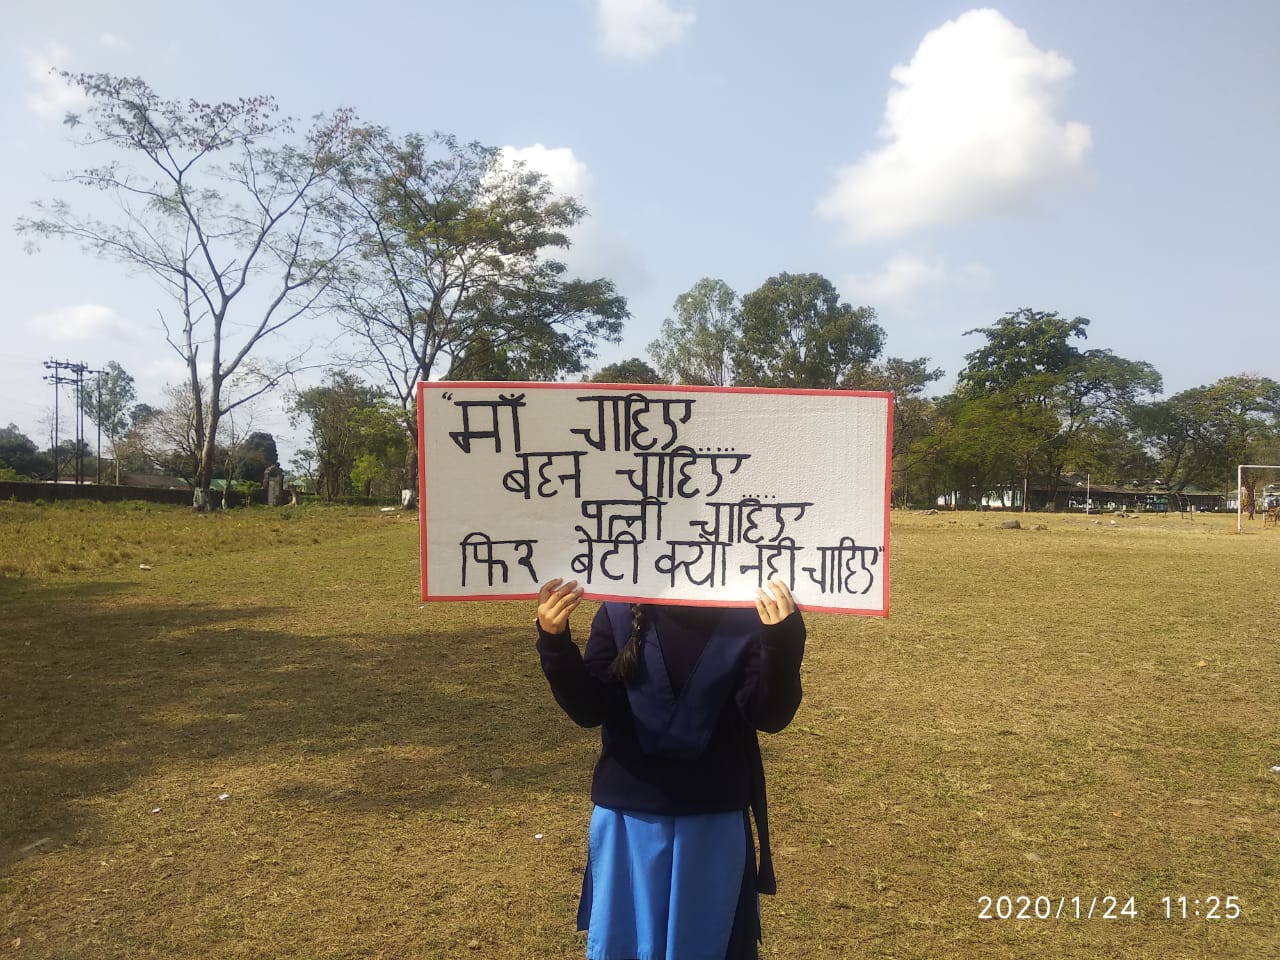 “माँ चाहिए.....
बहन चाहिए.....
पत्नी चाहिए....
फिर बेटी क्यों नही चाहिए”
2020/1/24 11:25